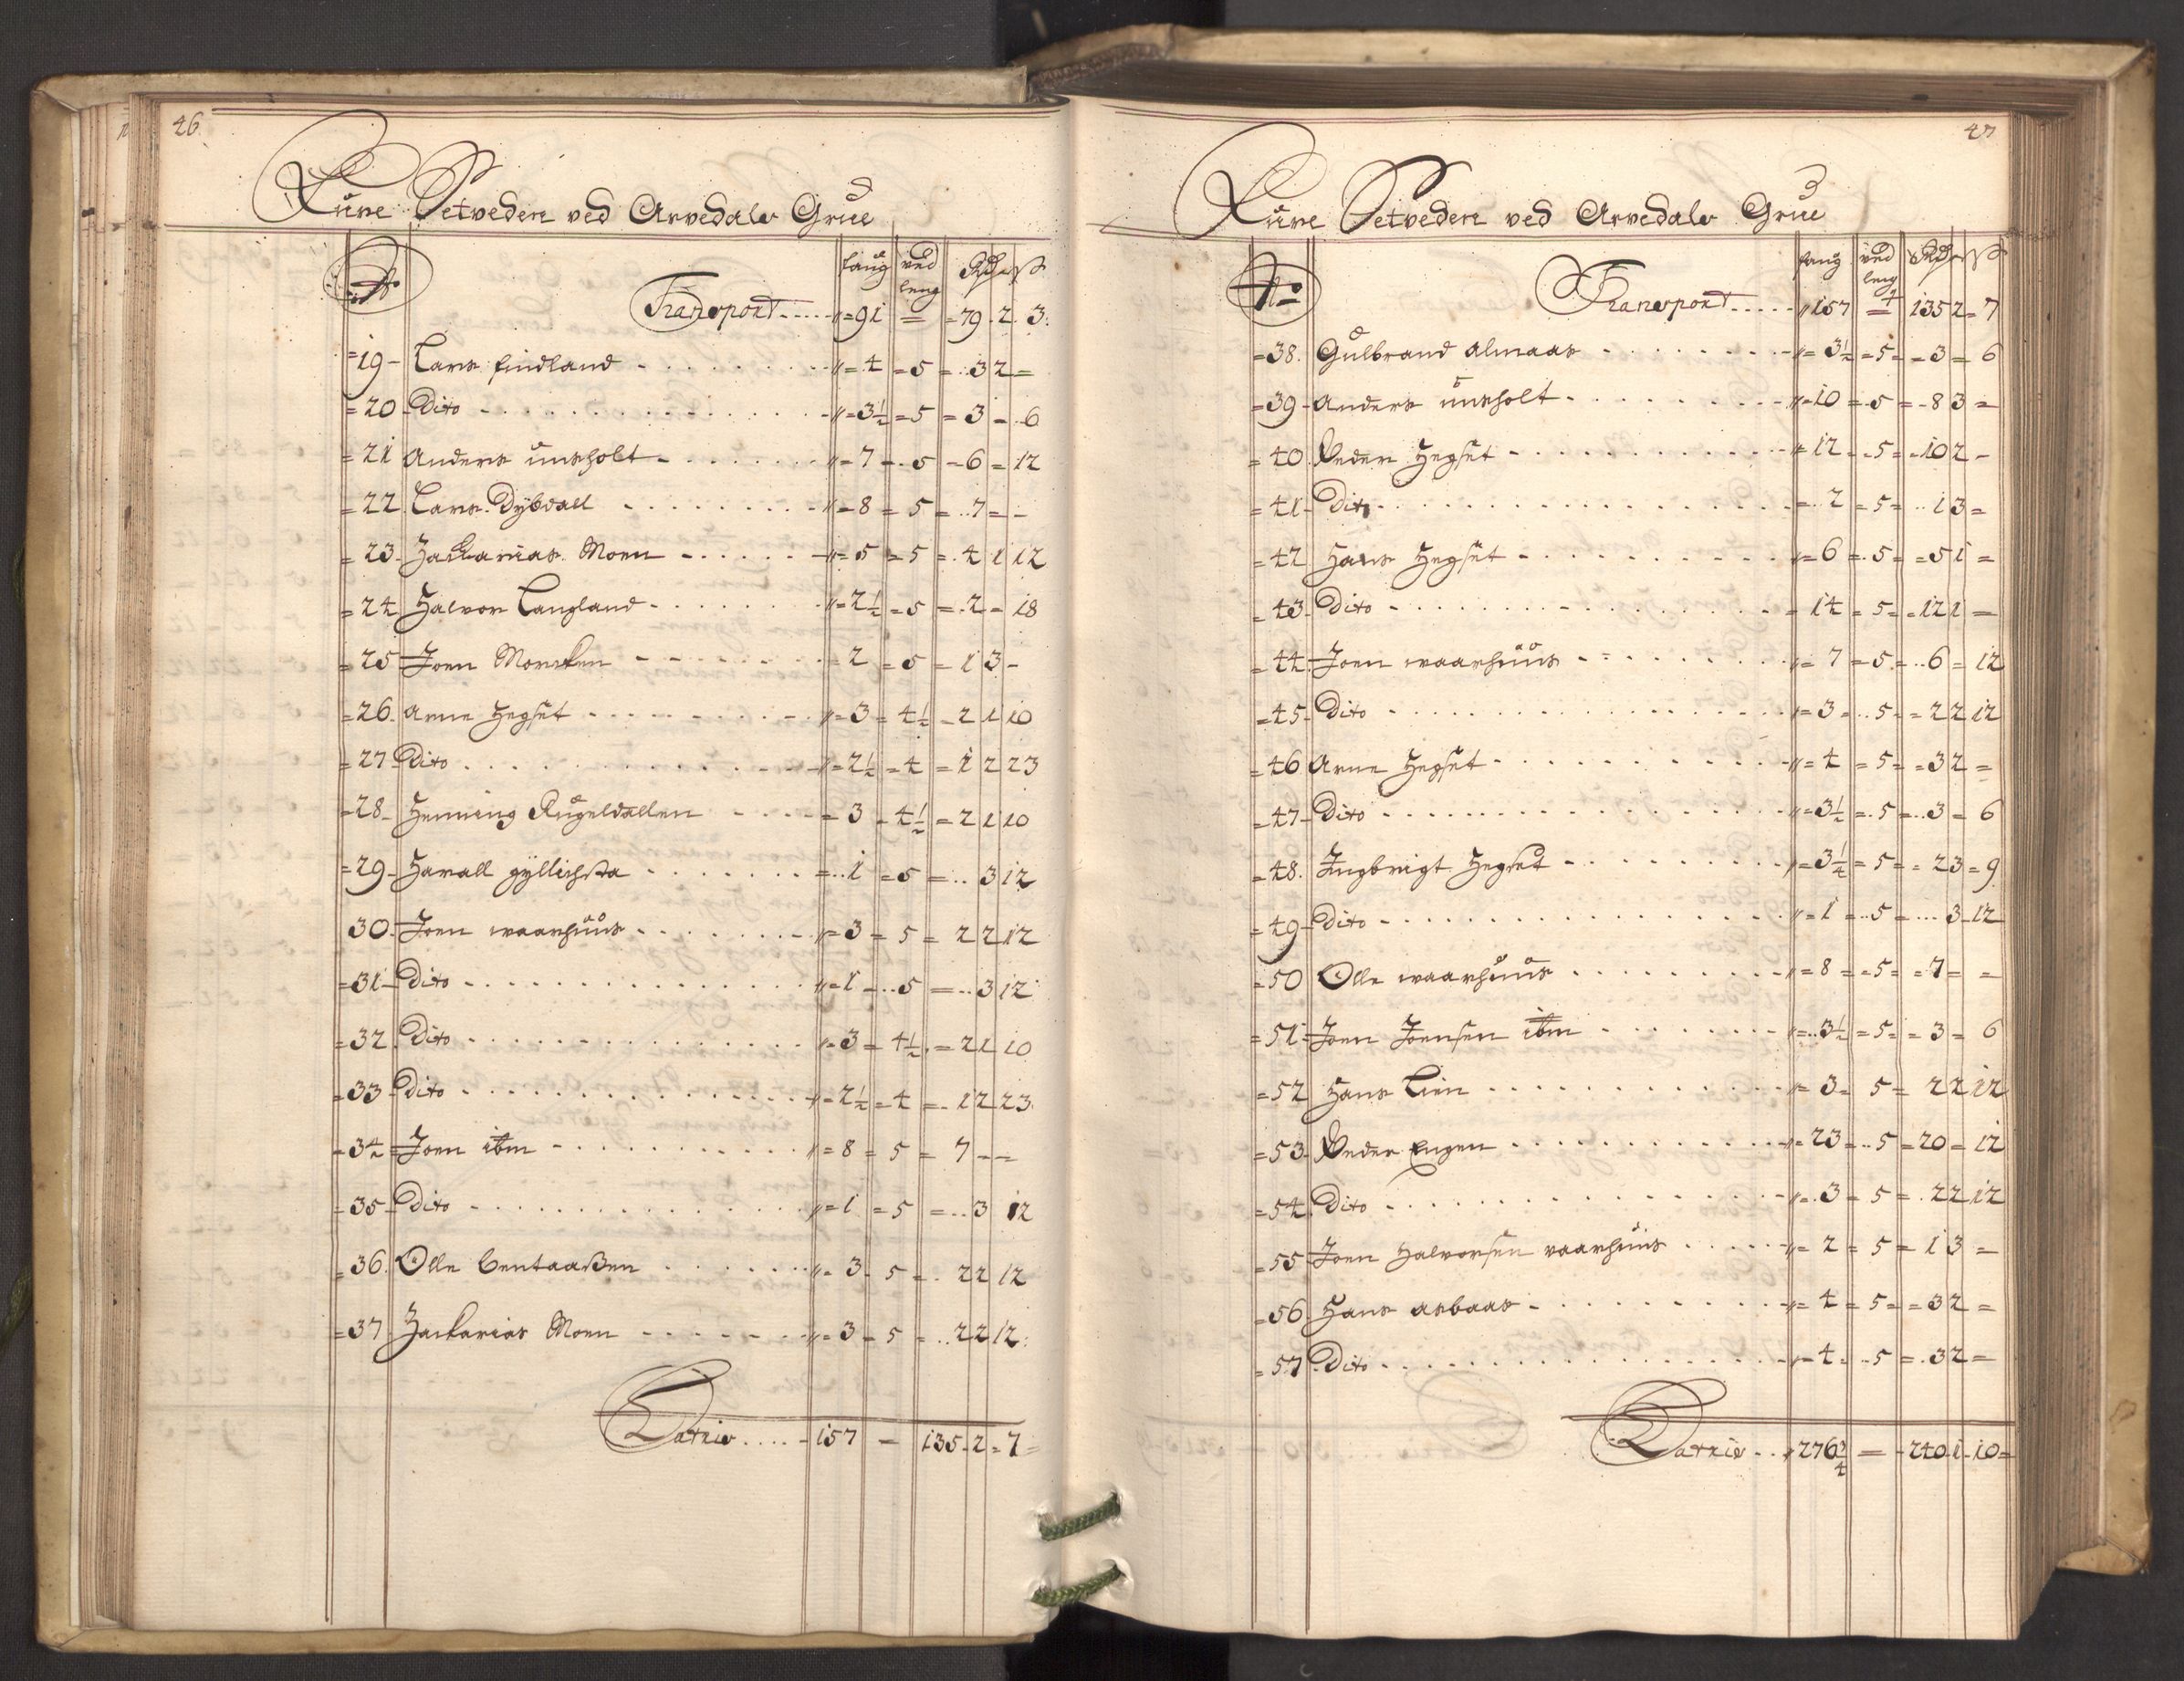 46
Kure Setveden ved Arvedals Grue
No faug ved leng Rdr ß
Transport ..... 91 = 79 . 2 . 3
19 Lars findland 4 5 3 2 =
20 Dito 3½ 5 3 - 6
21 Anders unsholt 7 5 6 = 12
22 Lars Dybdall 8 5 7 = -
23 Zacharias Moen 5 5 4 1 12
24 Halvor Langland 2½ 5 2 - 18
25 Joen Morsken 2 5 1 3 -
26 Arne Hegset 3 4½ 2 1 10
27 Dito 2½ 4 1 2 23
28 Henning Rugeldallen 3 4½ 2 1 10
29 Harall 1 5 3 12
30 Joen waarhuus 3 5 2 2 12
31 Dito 1 5 3 12
32 Dito 3 4½ 2 1 10
33 Dito 2½ 4 1 2 23
34 Joen ibm 8 5 7 - =
35 Dito 1 5 3 12
36 Olle bentaaßen 3 5 2 2 12
37 Zackarias Moen 3 5 2 2 12
Latris ..... 157 - 135 - 2 = 7 =
47
Kure Setveden ved Arvedals Grue
No faug ved leng Rdr ß
Transport ..... 157 = 135 2 = 7
38 Gulbrand Almaas 3½ 5 3 = 6
39 Anders unsholt 10 5 8 3 =
40 Peder Hegset 12 5 10 2 -
41 Dito 2 5 1 3 =
42 Hans Hegset 6 5 5 1 =
43 Dito 14 5 12 1 =
44 Joen waarhuus 7 5 6 = 12
45 Dito 3 5 2 2 12
46 Arne Hegset 4 5 3 2 =
47 Dito 3½ 5 3 = 6
48 Ingbrigt Hegset 3¼ 5 2 3 = 9
49 Dito 1 5 3 12
50 Olle waarhuus 8 5 7 = =
51 Joen Joensen ibm 3½ 5 3 = 6
52 Hans Lien 3 5 2 2 12
53 Peder Engen 23 5 20 = 12
54 Dito 3 5 2 2 12
55 Joen Halvorsen waarhuus 2 5 1 3 =
56 Hans Asbaas 4 5 3 2 =
57 Dito 4 5 3 2 =
Latris .. 276¾ = 240 . 1 . 10 =